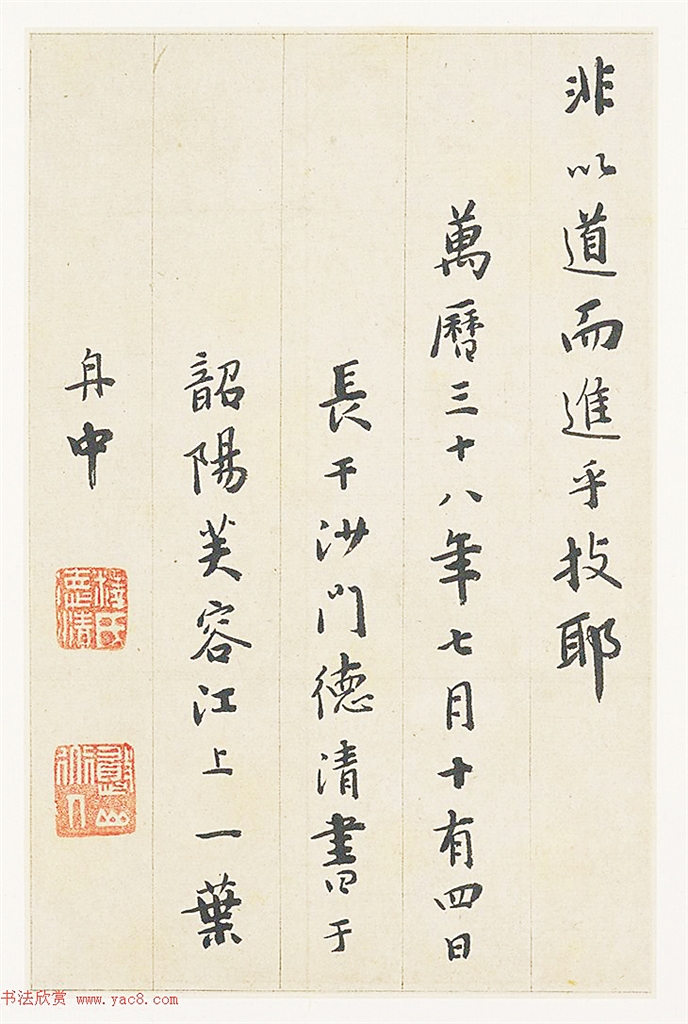 非以道而進乎技耶
萬曆三十八年七月十有四日
長干沙門德清書于
韶陽芙容江上一葉
舟中
釋氏德清
憨山
书法欣赏 www.yac8.com